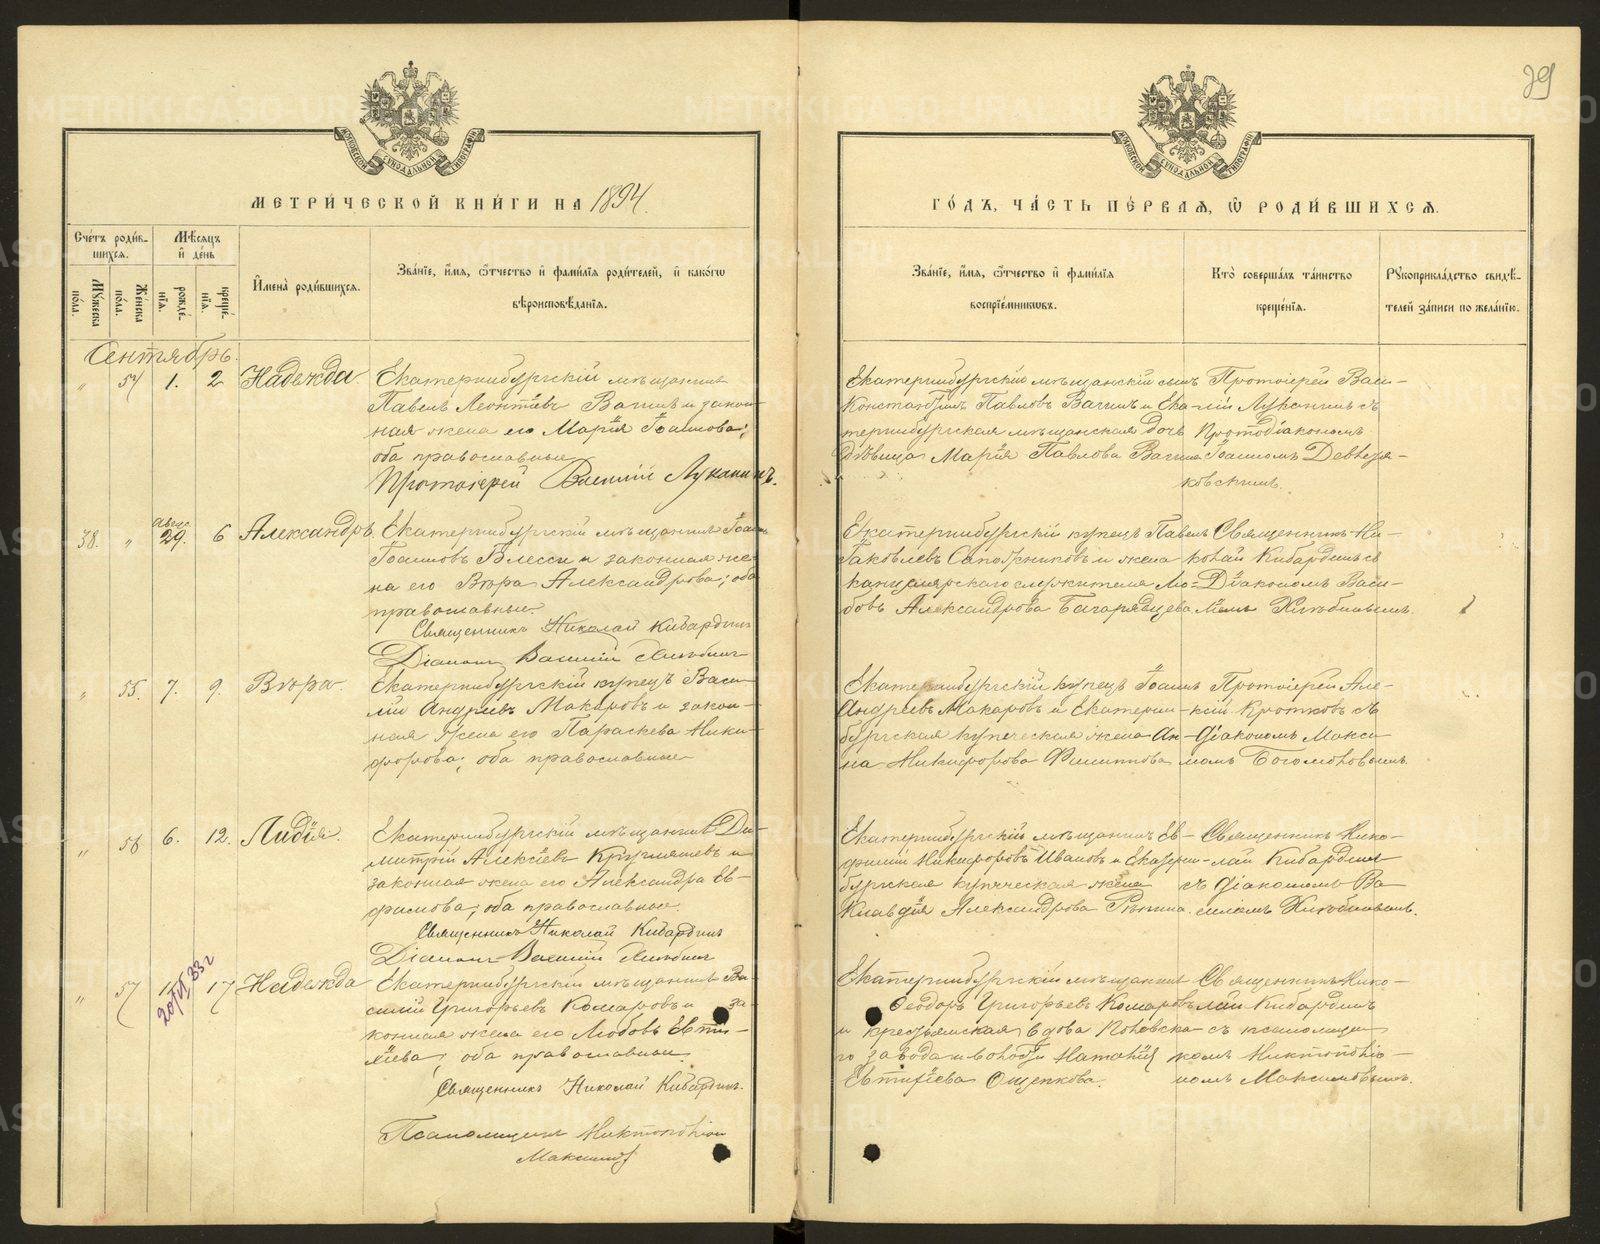 29
МЕТРИ́ЧЕСКОЙ КНИ́ГИ НА 1894.
ГО́ДЪ, ЧА́СТЬ ПЕ́РВАЯ, Ѡ҆ РОДИ́ВШИХСЯ.
Сче́тъ роди́вшихся.
Мѣ́сяцъ и҆ де́нь
Мꙋ́жеска по́ла.
Же́нска по́ла.
рожде́нїѧ.
креще́нїѧ.
И҆мена̀ роди́вшихсѧ.
Зва́нїе, и҆́мѧ, ѻ҆́тчество и҆ фами́лїѧ роди́телей, и҆ како́гѡ
вѣроисповѣ́данїѧ.
Зва́нїе, и҆́мѧ, ѻ҆́тчество и҆ фами́лїѧ
воспрїе́мникѡвъ.
Кто̀ соверша́лъ та́инство
креще́нїѧ.
Рꙋкоприкла́дство свидѣ́-
телей за́писи по жела́нїю.
Сентябрь.
" 54 1. 2 Надежда.
Екатеринбургскій мѣщанинъ
Павелъ Леонтіевъ Вагинъ и закон-
ная жена его Марія Іоаннова;
оба православные
Протоіерей Василій Луканинъ.
Екатеринбургскій мѣщанскій сынъ
Константинъ Павловъ Вагинъ и Ека-
теринбургская мѣщанская дочь
дѣвица Марія Павлова Вагина
Протоіерей Васи-
лій Луканинъ съ
Протодіакономъ
Іоанномъ
ковскимъ.
38. " Авгус. 29. 6 Александръ.
Екатеринбургскій мѣщанинъ Іоаннъ
Іоанновъ и законная же-
на его Вѣра Александрова; оба
православные.
Священникъ Николай Кибардинъ
Діаконъ Василій Хлѣбинъ
Екатеринбургскій купецъ Павелъ
Іаковлевъ Сапожниковъ и жена
канцелярскаго служителя Лю-
бовь Александрова
Священникъ Ни-
колай Кибардинъ съ
Діакономъ Васи-
ліемъ
" 55. 7. 9. Вѣра.
Екатеринбургскій купецъ Васи-
лій Андреевъ Макаровъ и закон-
ная жена его Параскева Ники-
форова; оба православные
Екатеринбургскій купецъ Іоаннъ
Андреевъ Макаровъ и Екатерин-
бургская купеческая жена Ан-
на Никифорова Филиппова
Протоіерей Але-
ксій Кротковъ съ
діакономъ Макси-
момъ Богомоловымъ.
" 56 6. 12. Лидія.
Екатеринбургскій мѣщанинъ Ди-
митрій Алексѣевъ и
законная жена его Александра Ев-
фимова; оба православные.
Священникъ Николай Кибардинъ
Діаконъ Василій Хлѣбинъ
Екатеринбургскій мѣщанинъ Ев-
фимій Никифоровъ Ивановъ и Екатерин-
бургская купеческая жена
Клавдія Александрова
Священникъ Нико-
лай Кибардинъ
съ діакономъ Ва-
силіемъ
" 57 17 Надежда
Екатеринбургскій мѣщанинъ Ва-
силій Григорьевъ Комаровъ и за-
конная жена его Любовь Евти-
хіева; оба православные.
Священникъ Николай Кибардинъ.
Псаломщикъ
Максимов
Екатеринбургскій мѣщанинъ
Ѳеодоръ Григорьевъ Комаровъ
и крестьянская вдова
го завода
Евтихіева Ощепкова.
Священникъ Нико-
лай Кибардинъ
съ псаломщи-
комъ
номъ Максимовымъ.